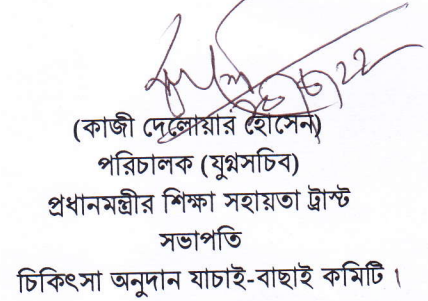 (কাজী দেলোয়ার হোসেন)
পরিচালক (যুগ্মসচিব)
প্রধানমন্ত্রীর শিক্ষা সহায়তা ট্রাস্ট
সভাপতি
চিকিৎসা অনুদান যাচাই-বাছাই কমিটি ।